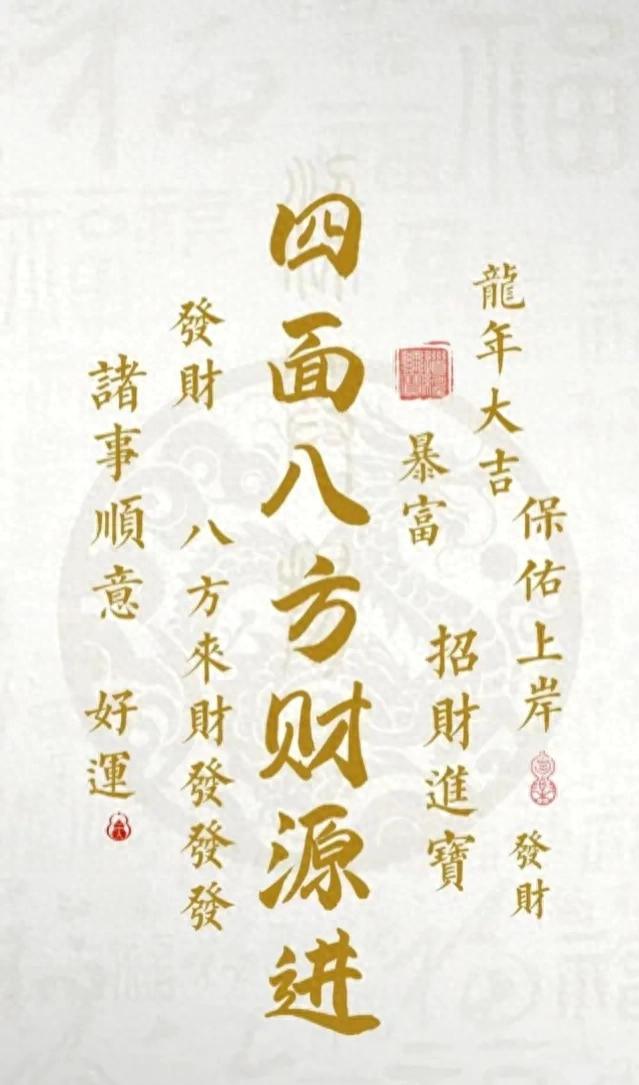 龍年大吉
保佑上岸
發財
暴富
招財進寶
四面八方财源进
發財
八方來財發發發
諸事順意
好運